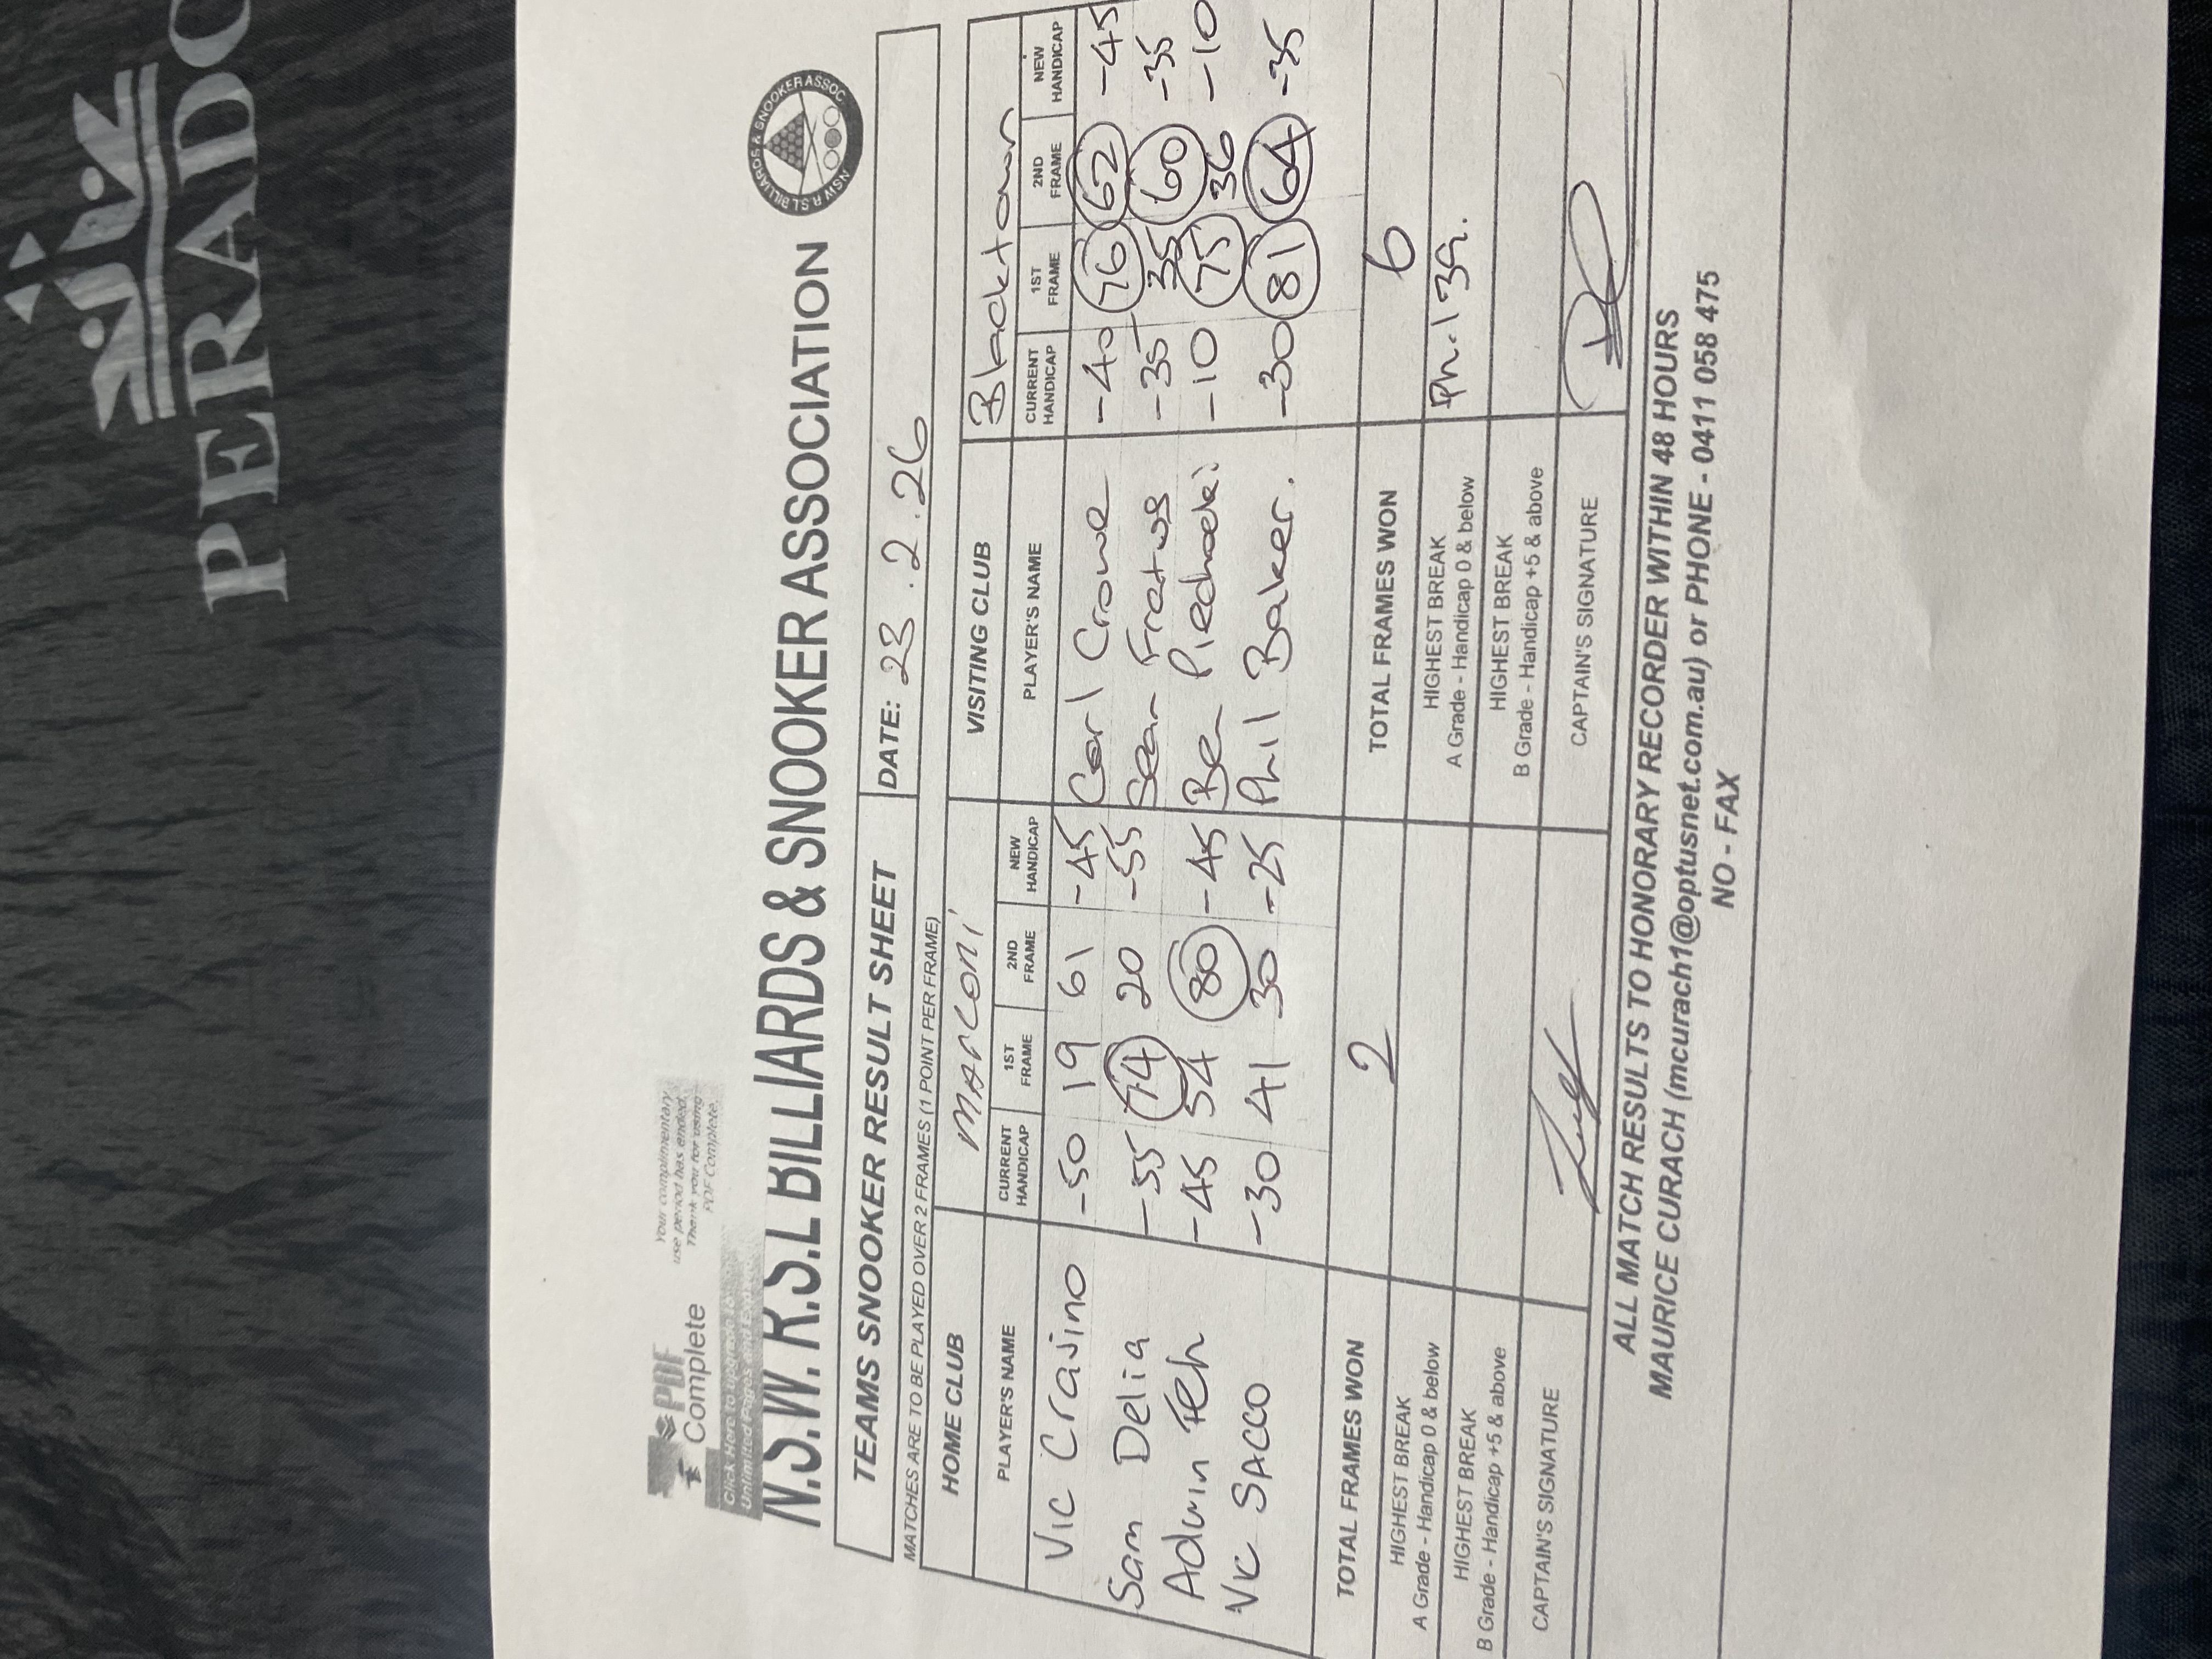 PERADO
Your complimentary
use period has ended.
Thank you for using
PDF Complete.
PDF
Complete
Click Here to upgrade to
Unlimited Pages and Exp
N.S.W. R.S.L BILLIARDS & SNOOKER ASSOCIATION
NSW R.S.L BILLIARDS & SNOOKER ASSOC
TEAMS SNOOKER RESULT SHEET DATE: 23.2.26
MATCHES ARE TO BE PLAYED OVER 2 FRAMES (1 POINT PER FRAME)
HOME CLUB MARCONI VISITING CLUB Blacktown
PLAYER'S NAME CURRENT HANDICAP 1ST FRAME 2ND FRAME NEW HANDICAP PLAYER'S NAME CURRENT HANDICAP 1ST FRAME 2ND FRAME NEW HANDICAP
Vic Crasino -50 19 61 -45 Carl Crowe -40 76 62 -45
Sam Delia -55 74 20 -55 Sean -35 35 60 -35
Adwin Feh -45 54 80 -45 Ben -10 75 36 -10
Vic SACCO -30 41 30 -25 Phil Baker. -30 81 64 -35
TOTAL FRAMES WON 2 TOTAL FRAMES WON 6
HIGHEST BREAK
A Grade - Handicap 0 & below
HIGHEST BREAK
A Grade - Handicap 0 & below
HIGHEST BREAK
B Grade - Handicap +5 & above
HIGHEST BREAK
B Grade - Handicap +5 & above
CAPTAIN'S SIGNATURE CAPTAIN'S SIGNATURE
ALL MATCH RESULTS TO HONORARY RECORDER WITHIN 48 HOURS
MAURICE CURACH (mcurach1@optusnet.com.au) or PHONE - 0411 058 475
NO - FAX